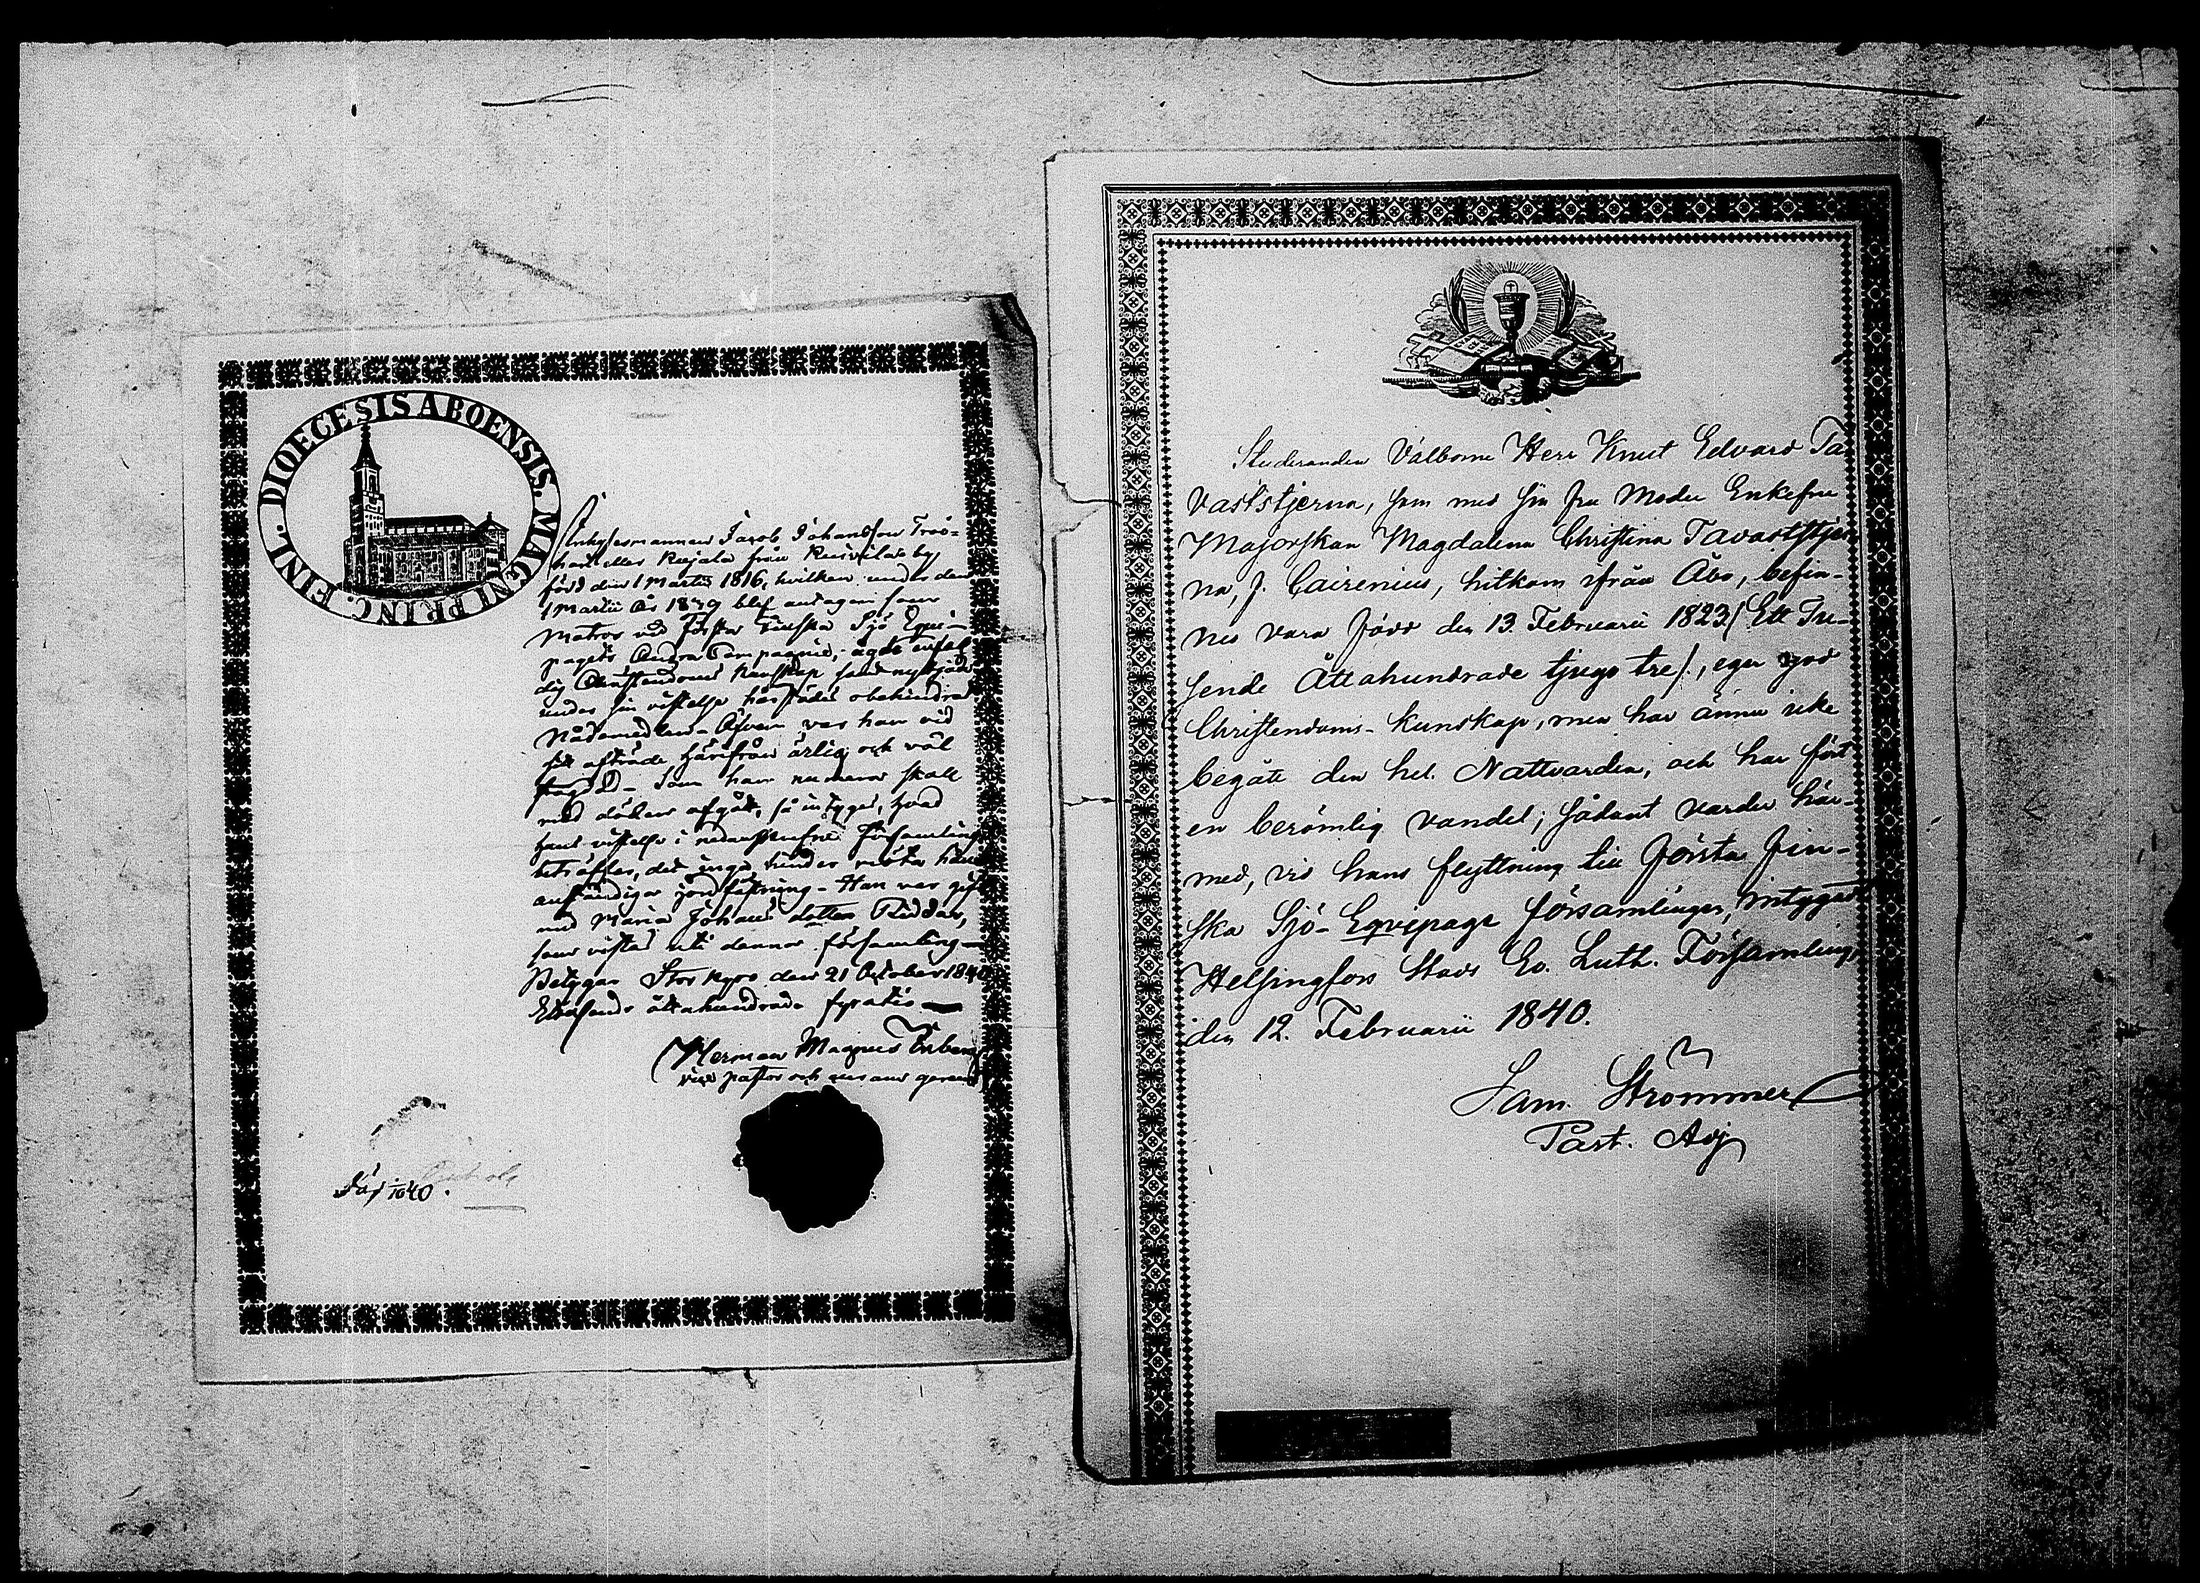 DIOECESIS ABOENSIS. MAGNI PRINC. FINL.
Inhysesmannen Jacob Johansson
eller Rujala från by
född den 1 Martii 1816, hvilken under den
1 Martii År 1839 blef antagen som
Matros vid Första Finska Sjö Equi-
pagets Andra Compagnie, ägde
dig Christendoms kunskap samt
under sin vistelse härstädes obehindrad
Nådemedlen - Äfven var han vid
sitt afträde härifrån ärlig och väl
frägd - Som han numera skall
med döden afgått, så intygas, hvad
hans vistelse i nedanskrefne Församling
beträffar, det inga hinder möta hans
anständiga jordfästning - Han var gift
med Maria Johans dotter Riddar,
som vistas uti denna församling -
Betygar Storkyro den 21 October 1840
Ettusende åttahundrade fyratio -
Herman Magnus
vice pastor och
1840.
Studeranden Välborne Herr Knut Edvard Ta-
vaststjerna, som med sin fru Moder Enkefru
Majorskan Magdalena Christina Tavaststjer-
na, f. Cairenius, hitkom ifrån Åbo, befin-
nes vara född den 13. Februarii 1823 (Ett Tu-
sende Åttahundrade tjugo tre), eger god
Christendoms-kunskap, men har ännu icke
begått den hel. Nattvarden, och har fört
en berömlig vandel; sådant varder här-
med, vid hans flyttning till Första Fin-
ska Sjö-Eqvipage församlingen, intygadt.
Helsingfors Stads Ev. Luth. Församling,
den 12. Februarii 1840.
Sam. Strömmer
Past. Adj